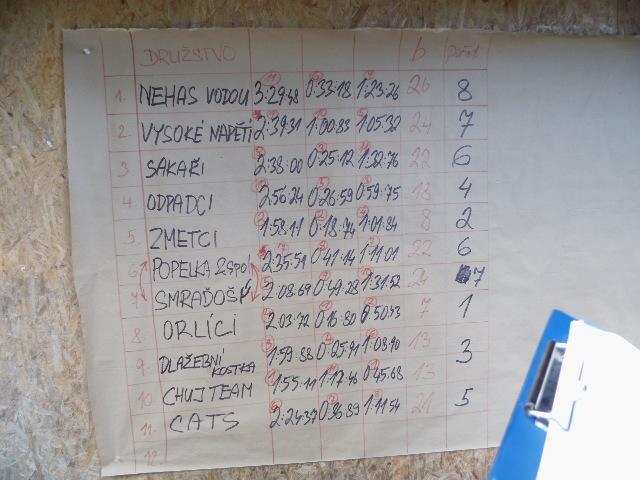 DRUŽSTVO b Pořadí
1. NEHAS VODOU 3:29:48 0:33:18 1:23:26 26 8
2. VYSOKÉ NAPĚTÍ 2:39:31 1:00:83 1:05:32 24 7
3 SAKAŘI 2:38:00 0:25:12 1:32:76 22 6
4. ODPADCI 2:56:24 0:26:59 0:59:75 13 4
5. ZMETCI 1:58:11 0:18:74 1:01:84 8 2
6 POPELKA & spol. 2:35:51 0:41:14 1:11:01 22 6
7 SMRAĎOŠI 2:08:69 0:49:28 1:31:52 24 7
8. ORLÍCI 2:03:72 0:16:80 0:50:43 7 1
9. DLAŽEBNÍ KOSTKA 1:59:88 0:25:91 1:08:90 13 3
10 CHUJ TEAM 1:55:11 1:17:48 0:45:68 13
11. CATS 2:24:37 0:36:89 1:11:54 21 5
12.